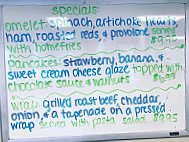 specials:
omelet: spinach, artichoke hearts,
ham, roasted reds, & provolone served
with homefries $9.95
pancakes: strawberry, banana, &
sweet cream cheese glaze topped with
chocolate sauce & walnuts $6.95
wrap: grilled roast beef, cheddar,
onion, & a tapenade on a pressed
wrap served with pasta salad $9.95